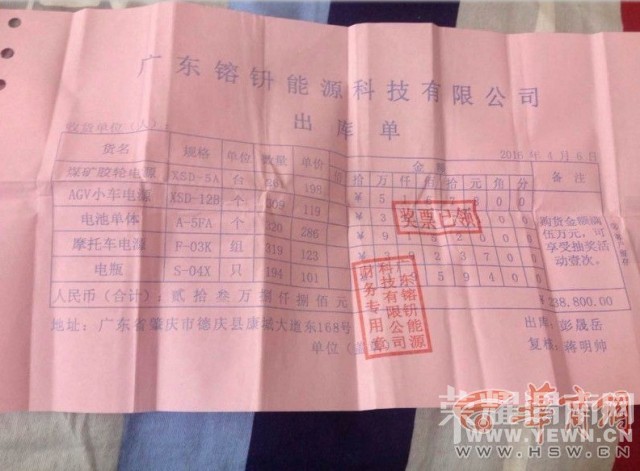 广东镕钘能源科技有限公司
出库单
收货单位(人)
2016年4月6日
货名 规格 单位 数量 单价 金额 备注
拾万仟佰拾元角分
煤矿胶轮电源 XSD-5A 台 198
AGV小车电源 XSD-12B 个 309 119
电池单体 A-5FA 个 320 286
摩托车电源 F-03K 组 319 123
电瓶 S-04X 只 194 101
购货金额满
伍万元,可
享受抽奖活
动壹次。
奖票已领
人民币(合计):贰拾叁万捌仟捌佰元 ¥238,800.00
地址:广东省肇庆市德庆县康城大道东168号
出库:彭晟岳
单位(盖章)
复核:蒋明帅
广东镕钘能源
科技有限公司
财务专用章
荣耀渭南网
WWW.YEWN.CN
华商网
WWW.HSW.CN